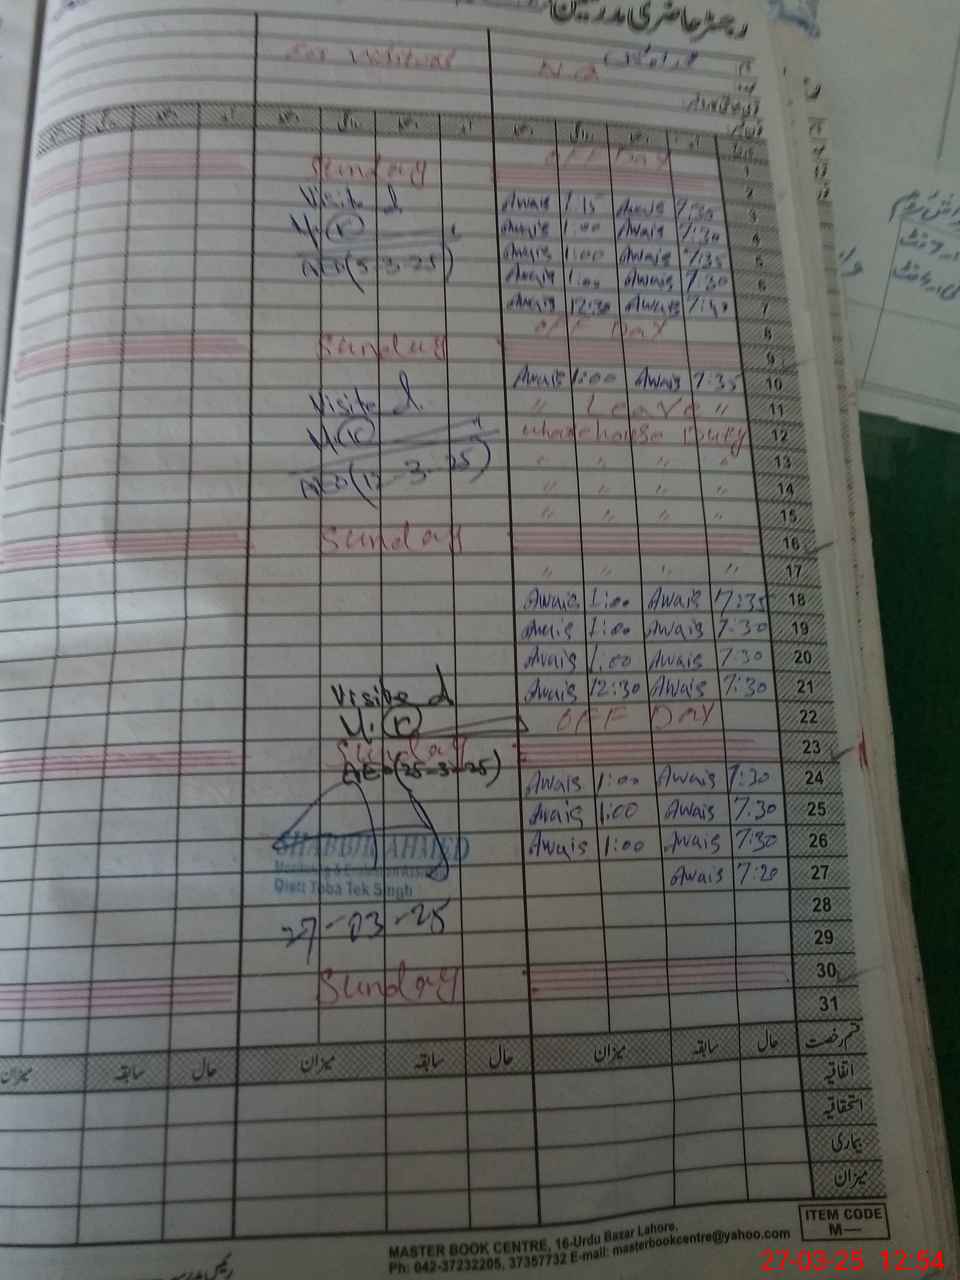 رجسٹر حاضری مدرسین
For Visitors
N.Q
1 OFF Day
Sunday
2
3 Awais 1:15 Awais 7:35
Visited
4 Awais 1:00 Awais 7:30
5 Awais 1:00 Awais 7:35
AEO (5-3-25)
6 Awais 1:00 Awais 7:30
7 Awais 12:30 Awais 7:40
8 OFF Day
Sunday
9
10 Awais 1:00 Awais 7:35
Visited
11 " Leave "
12 Wharehouse Duty
13 " " " "
AEO (12-3-25)
14 " " " "
15 " " " "
16
Sunday
17 " " " "
18 Awais 1:00 Awais 7:35
19 Awais 1:00 Awais 7:30
20 Awais 1:00 Awais 7:30
21 Awais 12:30 Awais 7:30
Visited
22 OFF Day
23
Sunday
AEO (25-3-25)
24 Awais 1:00 Awais 7:30
25 Awais 1:00 Awais 7:30
26 Awais 1:00 Awais 7:30
SHABBIR AHMED
27 Awais 7:20
Monitoring & Evaluation Assistant
Distt Toba Tek Singh
28
27-03-25
29
30
Sunday
31
قسم رخصت حال سابقہ میزان حال سابقہ میزان حال سابقہ میزان
اتفاقیہ
استحقاقیہ
بیماری
میزان
ITEM CODE
M—
MASTER BOOK CENTRE, 16-Urdu Bazar Lahore.
Ph: 042-37232205, 37357732 E-mail: masterbookcentre@yahoo.com
27-03-25 12:54